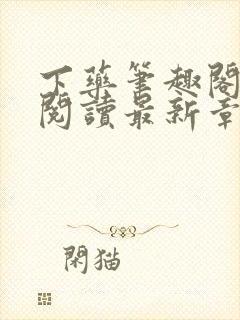 下藥筆趣閣
閱讀最新章
閑猫